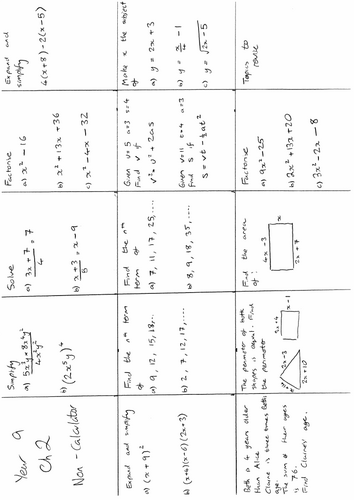 Year 9
Ch 2
Non-Calculator
Simplify
a)
b) (2x⁵y)⁴
Solve
a) 3x + 7 / 4 = 7
b) x + 3 / 5 = x - 9
Factorise
a) x² - 16
b) x² + 13x + 36
c) x² - 4x - 32
Expand and
simplify
4(x+8) - 2(x-5)
Expand and simplify
a) (x + 9)²
b) (x+4)(x-6)(2x+3)
Find the nth term
of
a) 9, 12, 15, 18, ...
b) 2, 7, 12, 17, ....
Find the nth
term of
a) 7, 11, 17, 25, ...
b) 8, 9, 18, 35, ....
Given v=5 a=3 s=4
Find v if
v² = u² + 2as
Given v=11 t=4 a=3
Find s if
s = vt - ½at²
Make x the subject
of
a) y = 2x + 3
b) y = x/4 - 1
c) y = √2x - 5
Beth is 4 years older
than Alice
Claire is three times Beth's
age.
The sum of their ages
is 76.
Find Claire's age.
The perimeter of both
shapes is equal. Find
the perimeter
2x - 3
2x + 10
3x + 4
x - 1
Find the area
of:
4x - 3
x
2x + 7
Factorise
a) 9x² - 25
b) 2x² + 13x + 20
c) 3x² - 2x - 8
Topics to
revise